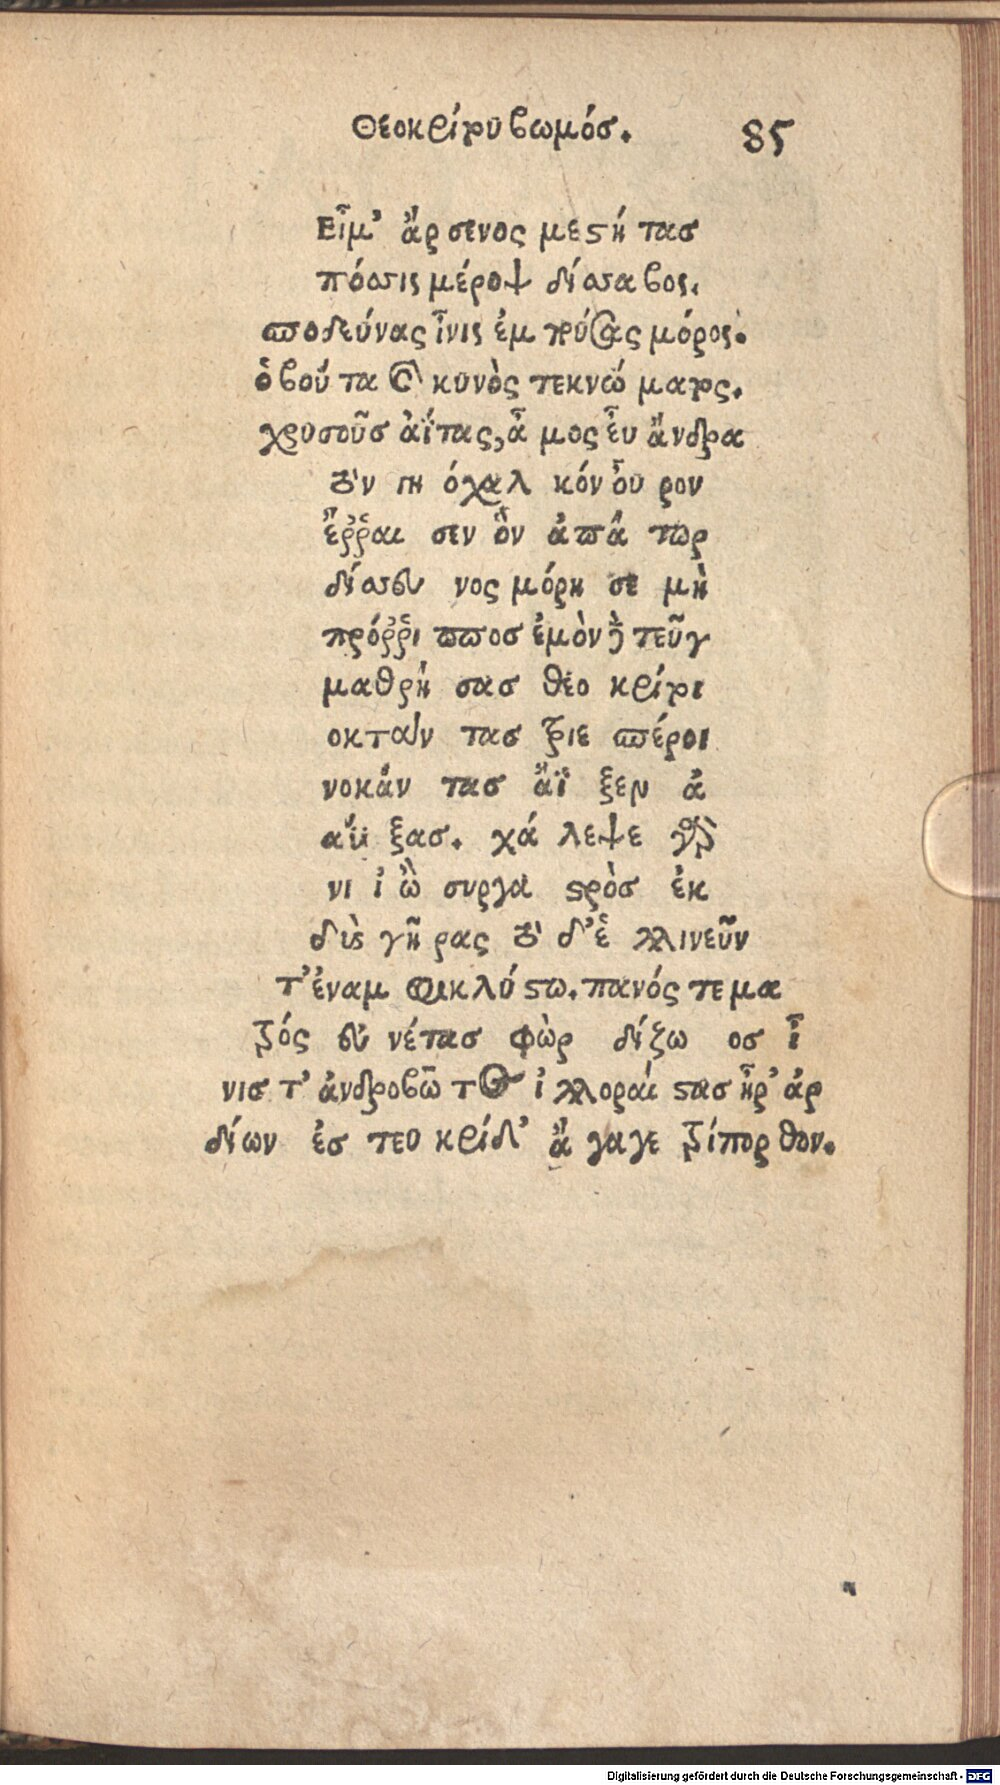 Θεοκρίτου βωμός. 85
Εἶμ' ἄρ σενος με στή τασ
πόσσις μέροψ δίσσα βος.
ποδεύνας ἶνις ἐμ πύρας μόρος.
ὁ βού τα ος κυνὸς τεκνώ ματος.
χρυσοῦσ ἀΐτας, ἆ μος ἐυ ἄνδρα
τὸν γη όχαλ κόν οὖ ρον
ἔῤῥαι σεν ὃν ἀπά τωρ
δίσευ νος μόρη σε μὴ
πρόῤῥι ππος ἐμὸν ἢ τεῦγ
μαθρή σασ θεο κρίτι
οκταίν τασ τριε σπέροι
νοκάν τασ ἄϊ ξεν ἀ
αὔ ξασ. χά λεψε γὰρ
νι ἰ ὢ συργα στρὸσ ἐκ
δὺς γῆ ρας τὸ δ' ἐ λλινεῦν
τ' ἐναμ φικλύ στω. πανός τε μα
τρός ευ νέτασ φὼρ δίζω οσ ἶ
νισ τ' ἀνδροβῶ τος ἰ λλοραί στασ ἦρ' ἀρ
δίων ἐσ τευ κρίδ' ἄ γαγε τρίπορ θον.
Digitalisierung gefördert durch die Deutsche Forschungsgemeinschaft - DFG